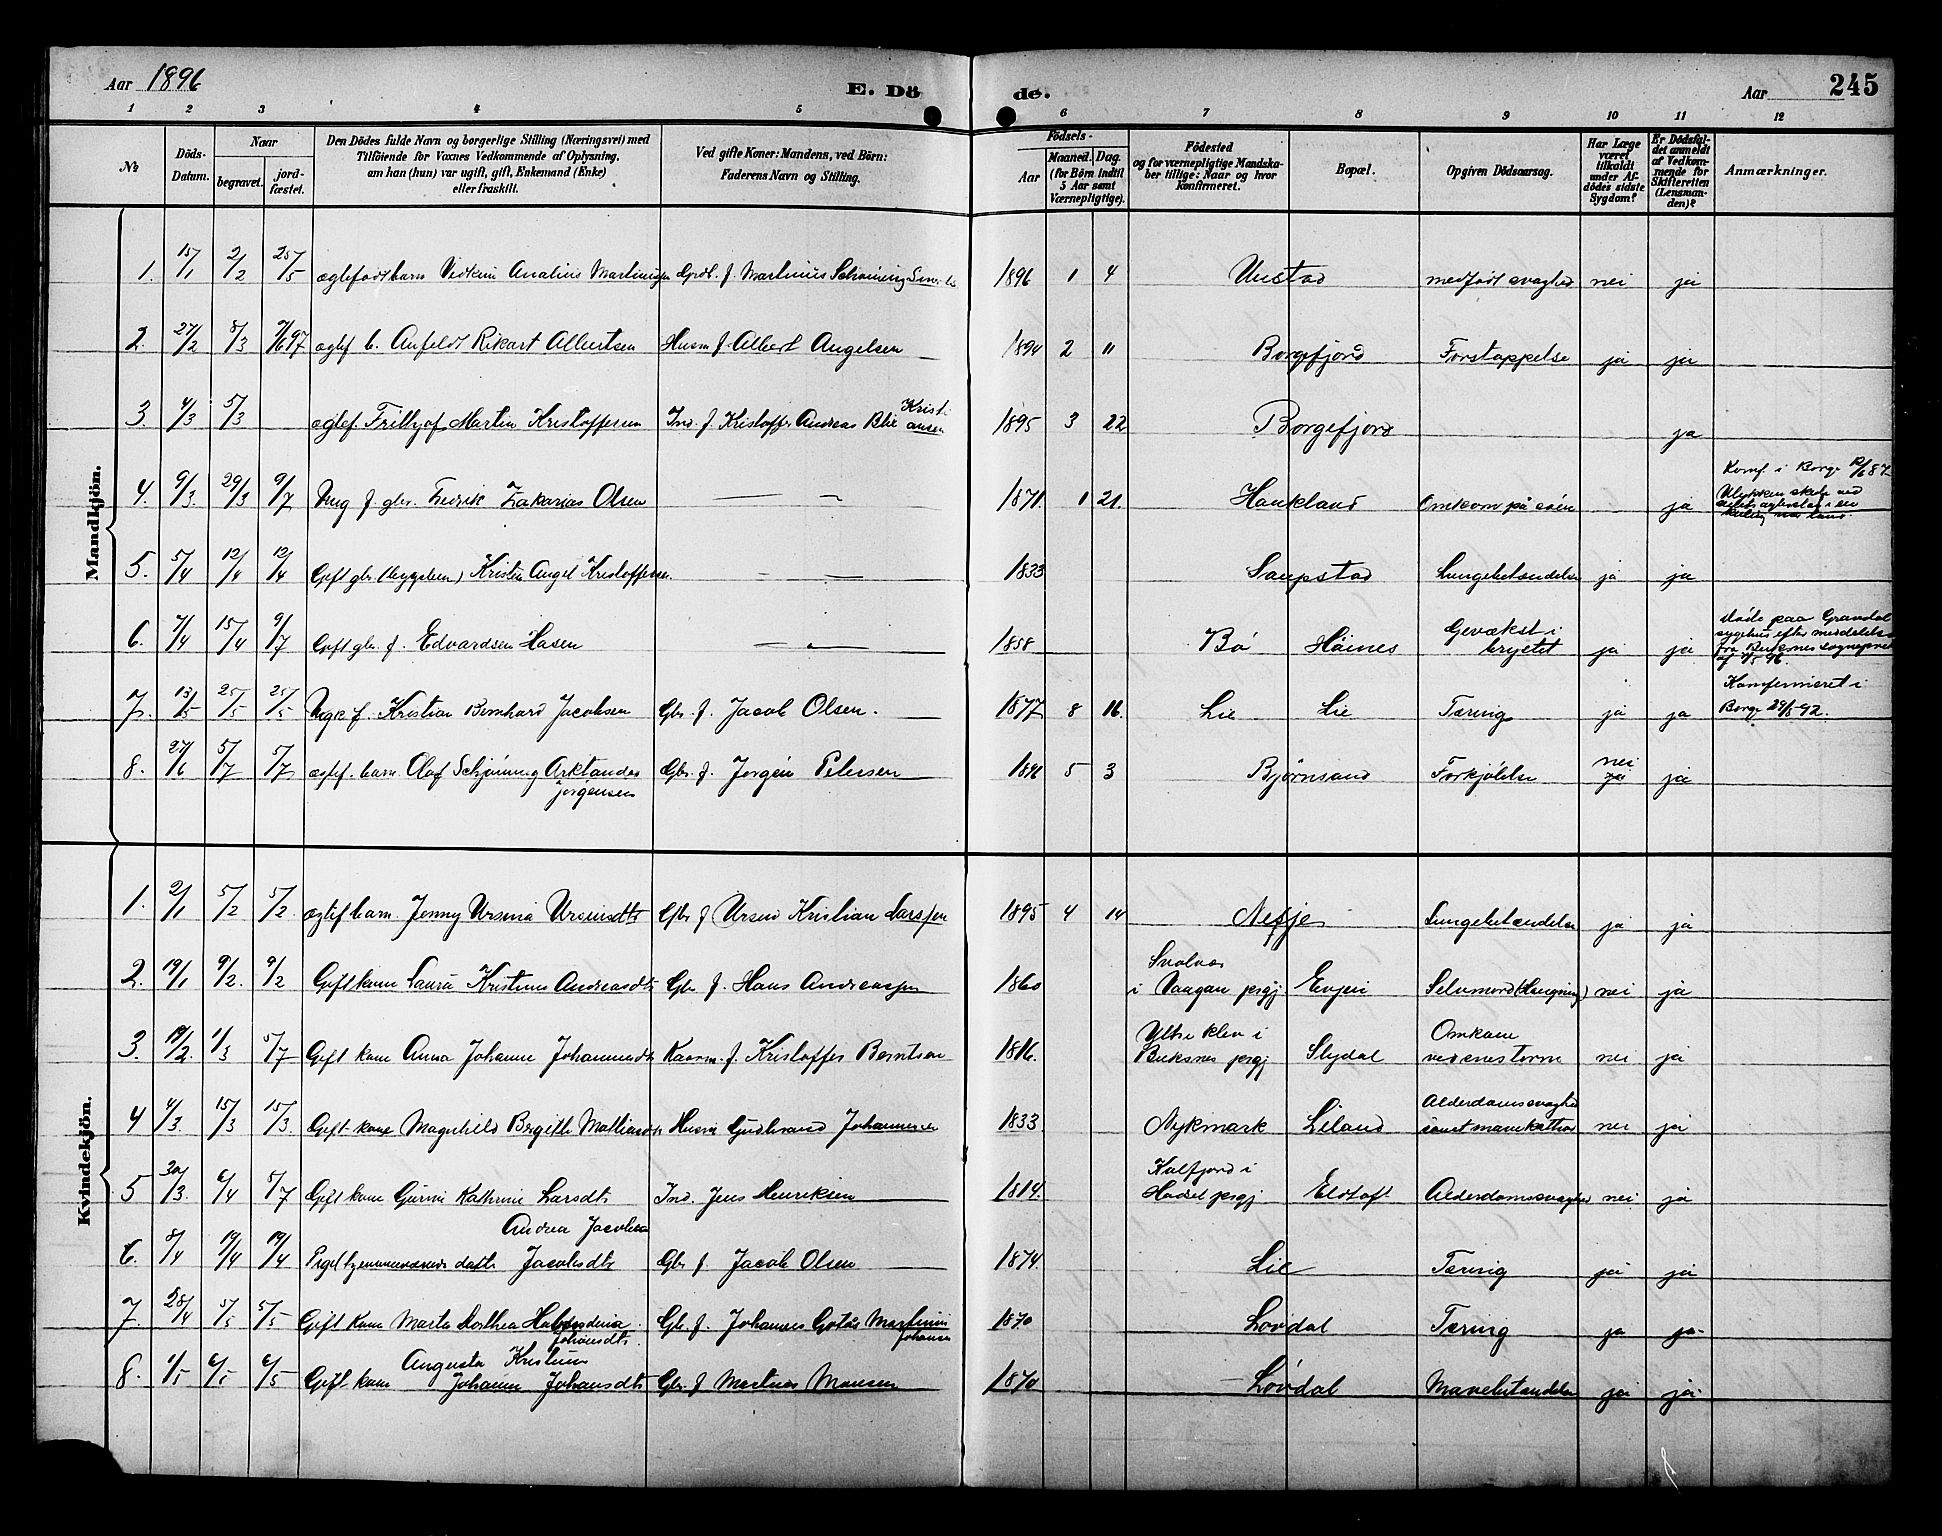 Aar 1896 E. Döde. Aar 245
1 2 3 4 5 6 7 8 9 10 11 12
№
Döds-Datum.
Naar
begravet.
jord-fæstet.
Den Dödes fulde Navn og borgerlige Stilling (Næringsvei) med
Tilföiende for Voxnes Vedkommende af Oplysning,
om han (hun) var ugift, gift, Enkemand (Enke)
eller fraskilt.
Ved gifte Koner: Mandens, ved Börn:
Faderens Navn og Stilling.
Födsels-
Aar
Maaned. Dag.
(for Börn indtil
5 Aar samt
Værnepligtige).
Födested
og for værnepligtige Mandska-
ber tillige: Naar og hvor
konfirmeret.
Bopæl.
Opgiven Dödsaarsag.
Har Læge
været
tilkaldt
under Af-
dödes sidste
Sygdom?
Er Dödsfal-
det anmeldt
af Vedkom-
mende for
Skifteretten
(Lensman-
den)?
Anmærkninger.
Mandkjön.
1. 15/1 2/2 25/5 ægtefødt barn Analius Martinus 1896 1 4 Unstad medfødt svaghed nei ja
2. 27/2 8/3 ægtef b. Anfeldt Rikart Albertsen Husm f. Albert Angelsen 1894 2 11 Borgefjord Forstoppelse ja ja
3. 4/3 5/3 ægtef. Frithjof Martin Kristoffersen Ind. f. Kristoffer Andreas Kristiansen 1895 3 22 Borgefjord ja
4. 9/3 29/3 9/7 Ung f. gbr. Fredrik Zakarias Olsen 1871. 1 21. Haukland Omkom på søen ja Konf. i Borge
5. 5/4 12/4 12/4 Gift gbr. Kristen Angel Kristoffersen. 1833 Saupstad Lungebetændelse ja ja
6. 7/4 15/4 9/7 Gift gbr. f. Edvardsen Hasen 1858 Bø Høines Gevækst i brystet ja ja Døde paa Gravdal sygehus efter meddelelse fra Buksnes sogneprest af
7. 13/5 25/5 25/5 Ungk f. Kristian Bernhard Jacobsen Gbr. f. Jacob Olsen. 1877 8 16. Lie Lie Tæring ja ja Konfirmeret i Borge 92.
8. 27/6 5/7 5/7 ægtef. barn Olaf Schjøning Arktander Jørgensen Gbr. f. Jørgen Petersen 5 3 Bjørnsand Forkjølelse nei ja ja
Kvindekjön.
1. 2/1 5/2 5/2. ægtef barn. Jenny Ursinia Ursinsdtr Gbr f Ursin Kristian Larssen 1895 4 14 Nesje Lungebetændelse ja ja
2. 19/1 9/2. 9/2 Gift kone Laura Kristine Andreasdtr Gbr f. Hans Andreassen 1860 Svolvær i Vaagan prgj Evjen Selvmord (Hængning) nei ja
3. 19/2. 1/3 5/7 Gift kone Anna Johanne Johannesdtr Kaarm. f. Kristoffer Berntsen 1816. Yttre klev i Buksnes prgj Slydal Omkom nei ja
4 4/3. 15/3 15/3. Gift kone Magnhild Bergithe Mathiasdtr Husm Gudbrand Johannesen 1833 Nykmark Liland Alderdomssvaghed samt mavekathar nei ja
5 30/3. 6/4 5/7 Gift kone Gurine Kathrine Larsdtr Ind. Jens Henriksen 1814. Kalfjord i Hadsel prgj Eltoft Alderdomssvaghed nei ja
6. 8/4 19/4 19/4 Pige hjemmeværende datter Andrea Jacobea Jacobsdtr Gbr f. Jacob Olsen 1874. Lie Tæring ja ja
7. 28/4 5/5 5/5 Gift kone Marta Dorthea Johansdtr. Gbr. f. Johannes Gotås Martinus Johansen 1870 Løvdal Tæring ja ja
8. 1/5 6/5 6/5 Gift kone Augusta Kristine Johanne Johansdtr Gbr. f Martinus Monsen 1870 Løvdal Mavebetændelse ja ja